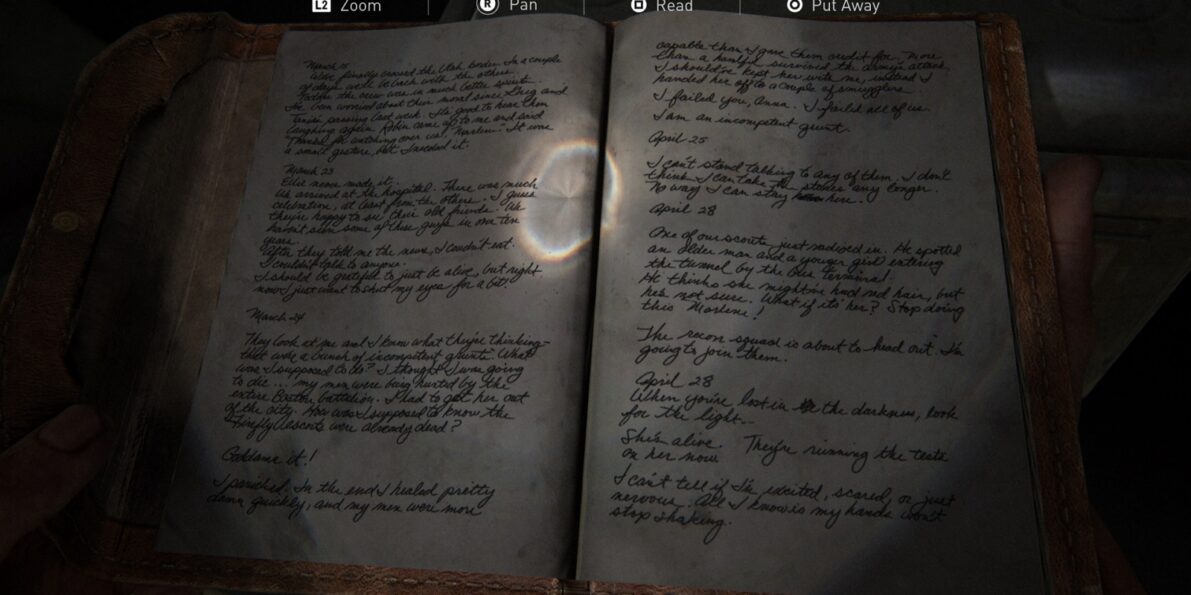 L2 Zoom
R Pan
Read
Put Away
March 15
We've finally crossed the Utah border. In a couple
of days we'll be back with the others.
Today the crew were in much better spirits.
I've been worried about their moral since Greg and
Tania's passing last week. It's good to hear them
laughing again. Robin came up to me and said
"Thanks for watching over us, Marlene." It was
a small gesture, but I needed it.
March 23
Ellie never made it.
We arrived at the hospital. There was much
celebration, at least from the others. I guess
they're happy to see their old friends. We
haven't seen some of these guys in over ten
years.
After they told me the news, I couldn't eat.
I couldn't talk to anyone.
I should be grateful to just be alive, but right
now I just want to shut my eyes for a bit.
March 24
They look at me and I know what they're thinking-
that we're a bunch of incompetent grunts. What
was I supposed to do? I thought I was going
to die... my men were being hunted by the
entire Boston battalion. I had to get her out
of the city. How was I supposed to know the
Firefly escorts were already dead?
Goddamn it!
I panicked. In the end I healed pretty
damn quickly, and my men were more
capable than I gave them credit for. More
than a handful survived the army's attack.
I should've kept her with me, instead I
handed her off to a couple of smugglers.
I failed you, Anna. I failed all of us.
I am an incompetent grunt.
April 25
I can't stand talking to any of them, I don't
think I can take the stares any longer.
No way I can stay here.
April 28
One of our scouts just radioed in. He spotted
an older man and a younger girl entering
the tunnel by the bus terminal!
He thinks she might've had red hair, but
he's not sure. What if it's her? Stop doing
this Marlene!
The recon squad is about to head out. I'm
going to join them.
April 28
When you're lost in the darkness, look
for the light...
She's alive. They're running the tests
on her now.
I can't tell if I'm excited, scared, or just
nervous. All I know is my hands won't
stop shaking.